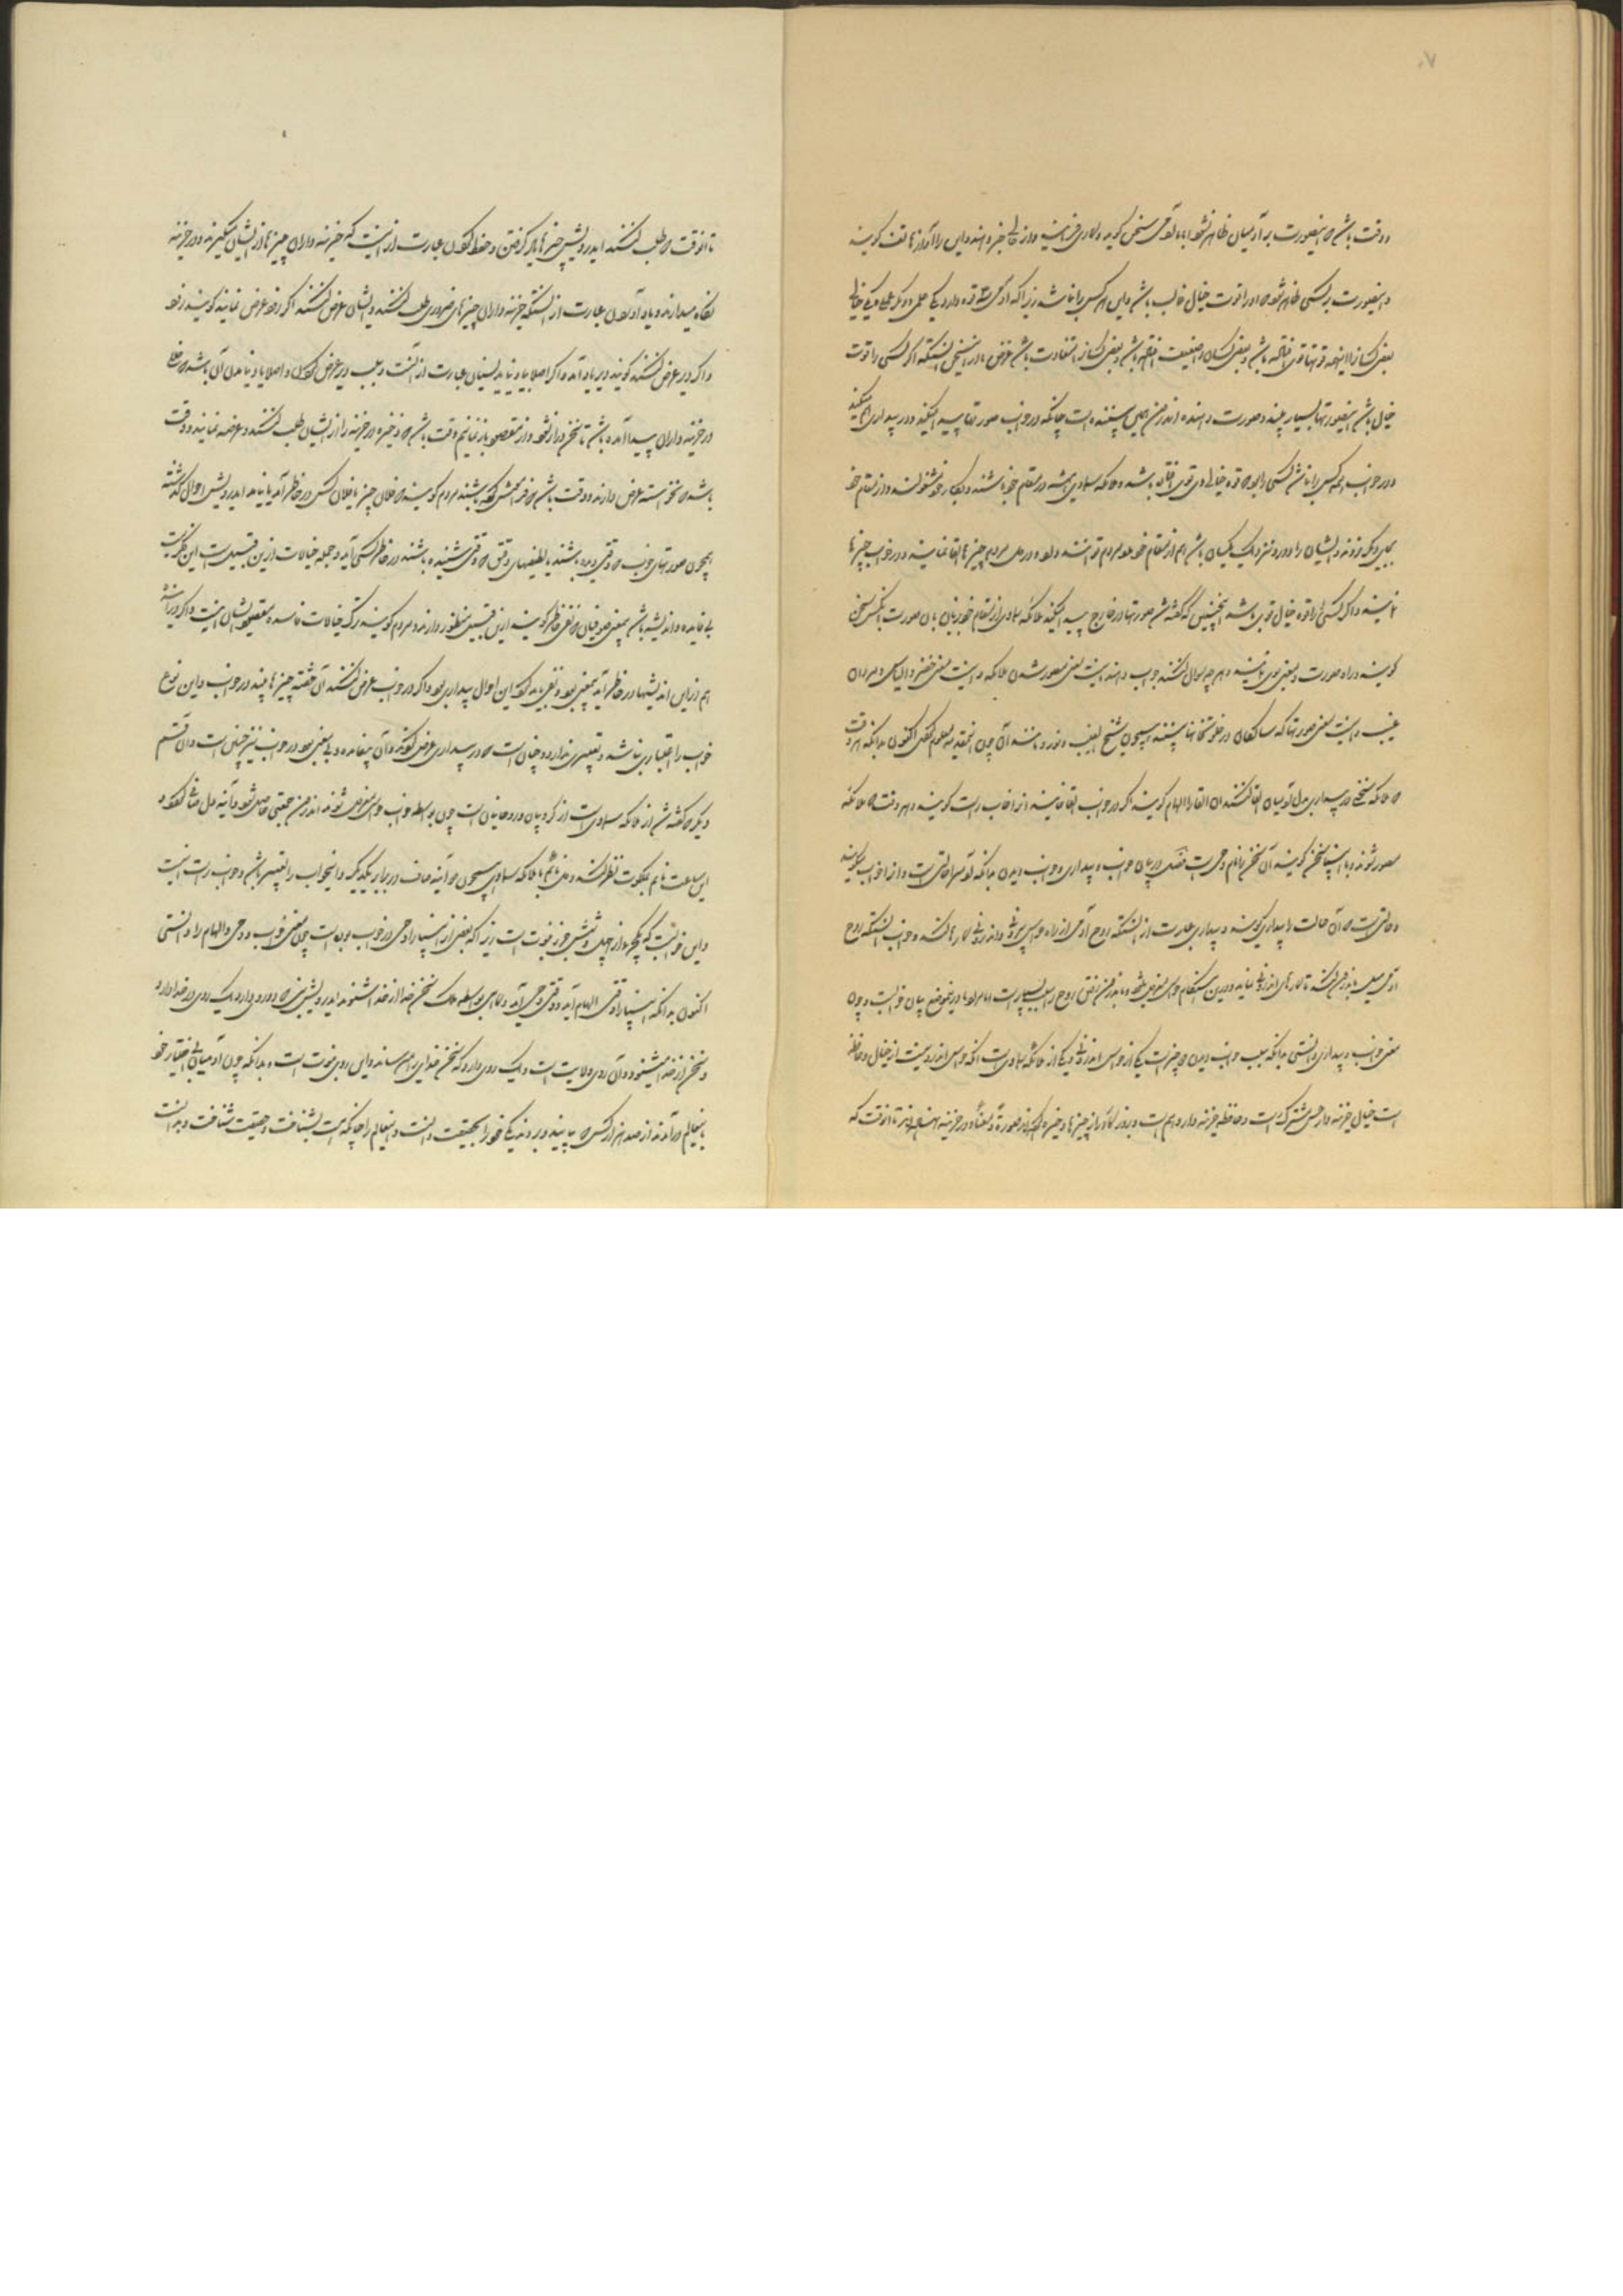 و وقت باشد که اینصورت بر آدمیان ظاهر نشود اما با آدمی سخن گوید و کاری فرماید و از حالی خبر دهند و این را آواز هاتف گویند
و اینصورت بر کسی ظاهر شود که او را قوت خیال غالب باشد و این هر کس را نباشد زیرا که آدمی سه قوه دارد یکی علمی و یکی عملی و یکی خیالی
بعضی کسانرا اینهمه قوتها قوی افتاده باشد و بعضی کسان را ضعیف افتاده باشد و بعضی کسانرا متفاوت باشد غرض ما درین سخن آنستکه اگر کسی را قوت
خیال باشد اینصورتها بسیار بیند و صورت دهنده اندرون همین پیشنده است چنانکه در خواب صورتها پیدا میکند و در بیداری هم میکند
و در خواب همه کس را باشد کسی را بود که قوه خیالی وی قوی افتاده باشد و ملائکه سماوی همیشه در مقام خود باشند و بکار خود مشغولند و از مقام خود
بجای دیگر نروند و ایشان را دور و نزدیک یکسان باشد هم از مقام خود بمردم توانند و در دل مردم چیزها القا نمایند و در خواب چیزها
نمایند و اگر کسی را قوه خیال قوی باشد همچنین که گفته شد صورتها در خارج پیدا میکند ملائکه سماوی از مقام خود بزبان آن صورت با آنکس سخن
گویند و راه صورت و معنی بوی نمایند و هر چه سوال کنند جواب دهند اینست معنی مصور شدن ملائکه و اینست معنی خضر و الیاس و مردان
غیب و اینست معنی صورتها که سالکان در خلوتخانها بینند همچون شیخ الغیب و نور و مانند آن چون اینمقدمه معلوم کردی اکنون بدانکه هر وقت
که ملائکه سخنی در بیداری بدل آدمیان القا کنند آن القا را الهام گویند و اگر در خواب القا نمایند آنرا خواب راست گویند و هر وقت که ملائکه
مصور شوند و با انبیا سخن گویند آن سخن را نام وحی است فصل در بیان خواب و بیداری و خواب دیدن بدانکه آدمیرا حالتی است و آنرا خواب میگویند
و حالتی است که آن حالت را بیداری گویند و بیداری عبارت از آنستکه روح آدمی از راه حواس بیرونی و اندرونی کارها کند و خواب آنستکه روح
آدمی میل باندرون کند تا کارهای اندرونی نماید و درین هنگام حواس معزول شود و باندرون رفتن روح را سبب بسیار است اما مراد ما درینموضع بیان خوابست و چون
معنی خواب و بیداری دانستی بدانکه سبب خواب دیدن دو چیز است یکی از حواس اندرونی و یکی از ملائکه سماوی است آنکه حواس اندرونیست از خیال و حافظه
است خیال خزینه دار حس مشترک است و حافظه خزینه دار وهم است و بروز کار ایشان چیزها ذخیره کرده اند صورة و معنا در خزینه نهاده اند تا آنوقت که
تا آنوقت که طلب کنند ایدرویش چیزها یاد گرفتن و حفظ کردن عبارت از آنست که خزینه داران چیزها از ایشان میگیرند و در خزینه
نگاه میدارند و یاد آوردن عبارت از آنستکه خزینه داران چیزهای ضروری طلب کنند و ایشان عرض کنند اگر زود عرض نمایند گویند زود
و اگر دیر عرض کنند گویند دیر یاد آمد و اگر اصلا یاد نیاید نسیان عبارت از آنست و سبب دیر عرض کردن و اصلا یاد نیامدن آن باشد که خللی
در خزینه داران پیدا آمده باشد تا سخن دراز نشود و از مقصود باز نمانیم وقت باشد که ذخیره در خزینه را از ایشان طلب کنند و عرضه نمایند و وقت
باشد که نخواسته عرض دارند و وقت باشد که فراموش کرده باشند مردم گویند که فلان چیز یا فلان کس در خاطر آمد یا نیامد ایدرویش احوال گذشته
همچون صورتهای خوب که وقتی دیده باشند یا لطیفهای دقیق که وقتی شنیده باشند در خاطر کسی آید و جمله خیالات ازین قبیل است این فکریست
بی فایده و اندیشه باشد بمعنی صوفیان که نفی خاطر گویند ازین قسم منظور دارند و مردم گویند ترک خیالات فاسده مقصود ایشان اینست و اگر در
هم ازین اندیشها در خاطر آید بمعنی بود و نفی باید کرد این احوال بیداری بود و اگر در خواب عرض کنند آن خفته چیزها بیند در خواب و این نوع
خواب را اعتباری نباشد و تعبیری ندارد و چنان است که در بیداری عرض کردند و آن بیفایده و بی معنی بود در خواب نیز چنان است و آن قسم
دیگر که گفته شد از ملائکه سماوی است از کروبیان و روحانیان است چون بواسطه خواب حواس معزول شوند اندرون جمعیتی حاصل شود و آئینه دل صفا گیرد و
این ساعت نایم بملکوت نظر کند و دل نائم با ملائکه سماوی همچون دو آئینه صاف در برابر یکدیگر و اینخواب را تعبیر باشد و خواب راست اینست
و این خوابیست که یکجزو از چهل و شش جزو نبوت است زیرا که بعضی از انبیا را وحی در خواب بوده است چون معنی خواب و وحی و الهام را دانستی
اکنون بدانکه انبیا را وقتی الهام آید و وقتی وحی آید و گاهی بواسطه ملک سخن خدا از خدا شنوند ایدرویش نبی دو روی دارد یک روی در خدا دارد
و سخن از خدا میشنود و آن روی ولایت است و یک روی دارد که سخن خدایرا میرساند و این روی نبوت است و بدانکه چون آدمیان بی اختیار خود
باینعالم در آمدند از صد هزار کس که بیایند و بروند یکی خود را بحقیقت دانست و اینعالم را چنانکه هست بشناخت و حقیقت شناخت و بدانست